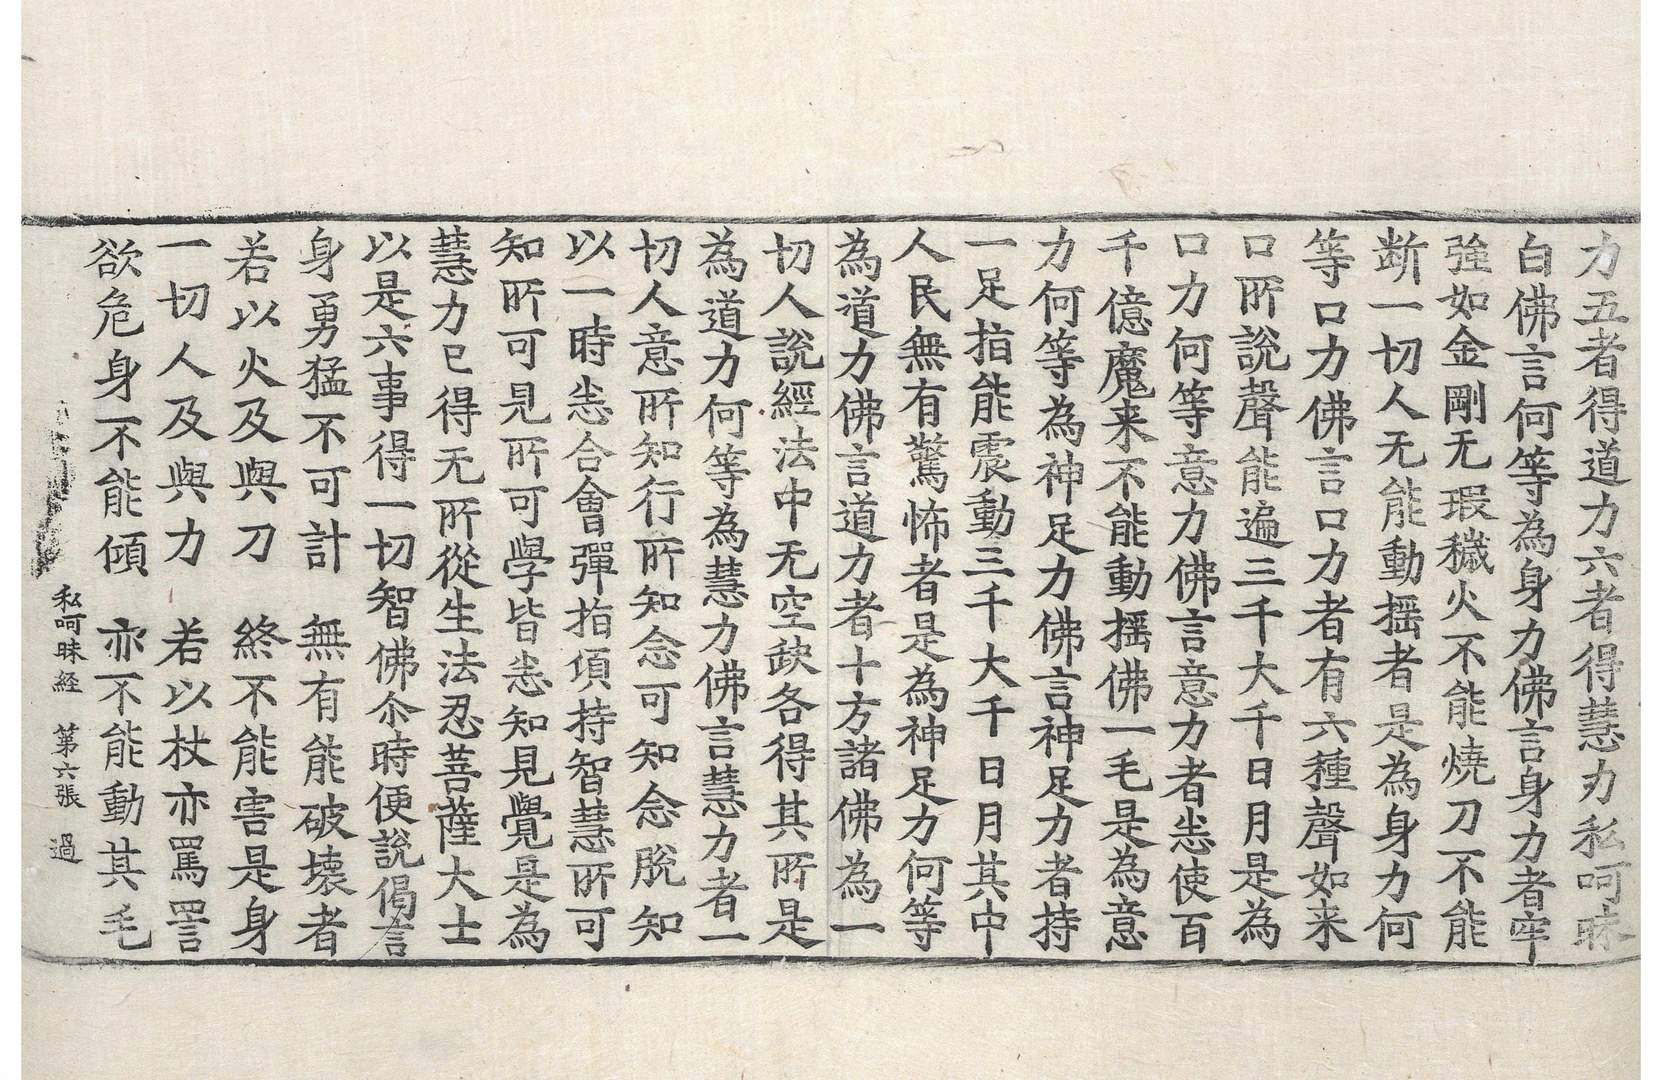 力五者得道力六者得慧力私呵昧
白佛言何等為身力佛言身力者牢
強如金剛无瑕穢火不能燒刀不能
断一切人无能動揺者是為身力何
等口力佛言口力者有六種聲如来
口所說聲能遍三千大千日月是為
口力何等意力佛言意力者悉使百
千億魔来不能動揺佛一毛是為意
力何等為神足力佛言神足力者持
一足指能震動三千大千日月其中
人民無有驚怖者是為神足力何等
為道力佛言道力者十方諸佛為一
切人說經法中无空缺各得其所是
為道力何等為慧力佛言慧力者一
切人意所知行所知念可知念脫知
以一時悉合會彈指頃持智慧所可
知所可見所可學皆悉知見覺是為
慧力已得无所從生法忍菩薩大士
以是六事得一切智佛尒時便說偈言
身勇猛不可計　無有能破壞者
若以火及與刀　終不能害是身
一切人及與力　若以杖亦罵詈
欲危身不能傾　亦不能動其毛
私呵昧經　第六張　過